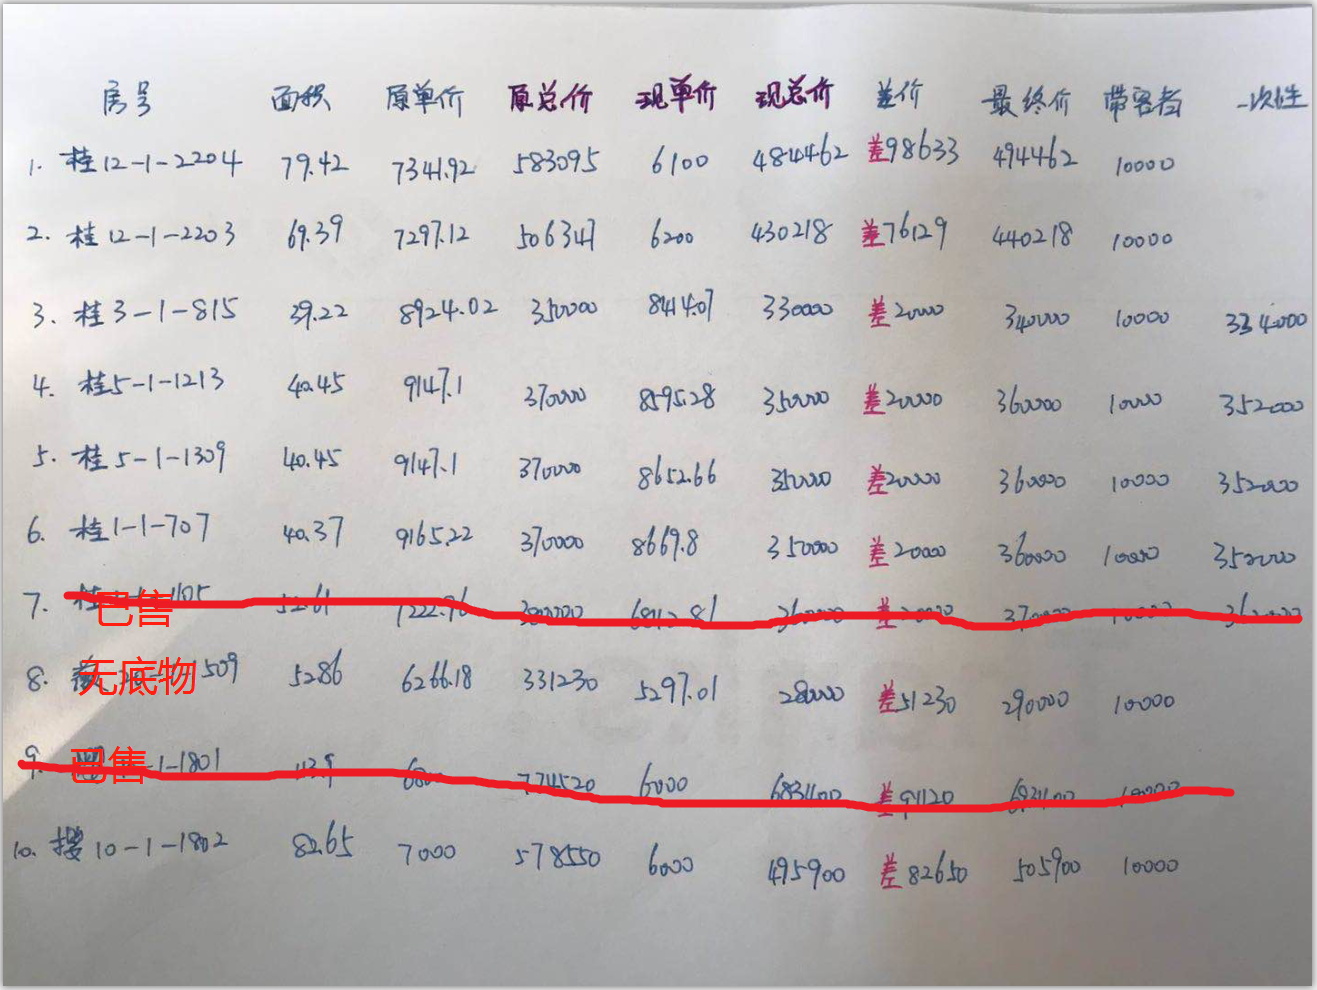 房号 面积 原单价 原总价 现单价 现总价 差价 最终价 带客者 一次性
1. 桂12-1-2204 79.42 7341.92 583095 6100 484462 差98633 494462 10000
2. 桂12-1-2203 69.39 7297.12 506347 6200 430218 差76129 440218 10000
3. 桂3-1-815 39.22 8924.02 350000 8414.07 330000 差20000 340000 10000 334000
4. 桂5-1-1213 40.45 9147.1 370000 8595.28 350000 差20000 360000 10000 352000
5. 桂5-1-1309 40.45 9147.1 370000 8652.66 350000 差20000 360000 10000 352000
6. 桂1-1-707 40.37 9165.22 370000 8669.8 350000 差20000 360000 10000 352000
7. 已售 52.61 7222.96 380000 6842.81 360000 差20000 370000 10000 362000
8. 无底物 509 52.86 6266.18 331230 5297.01 28000 差51230 290000 10000
9. 已售 -1-1801 113.9 6800 774520 6000 683400 差91120 693400 10000
10. 10-1-1802 82.65 7000 578550 6000 495900 差82650 505900 10000